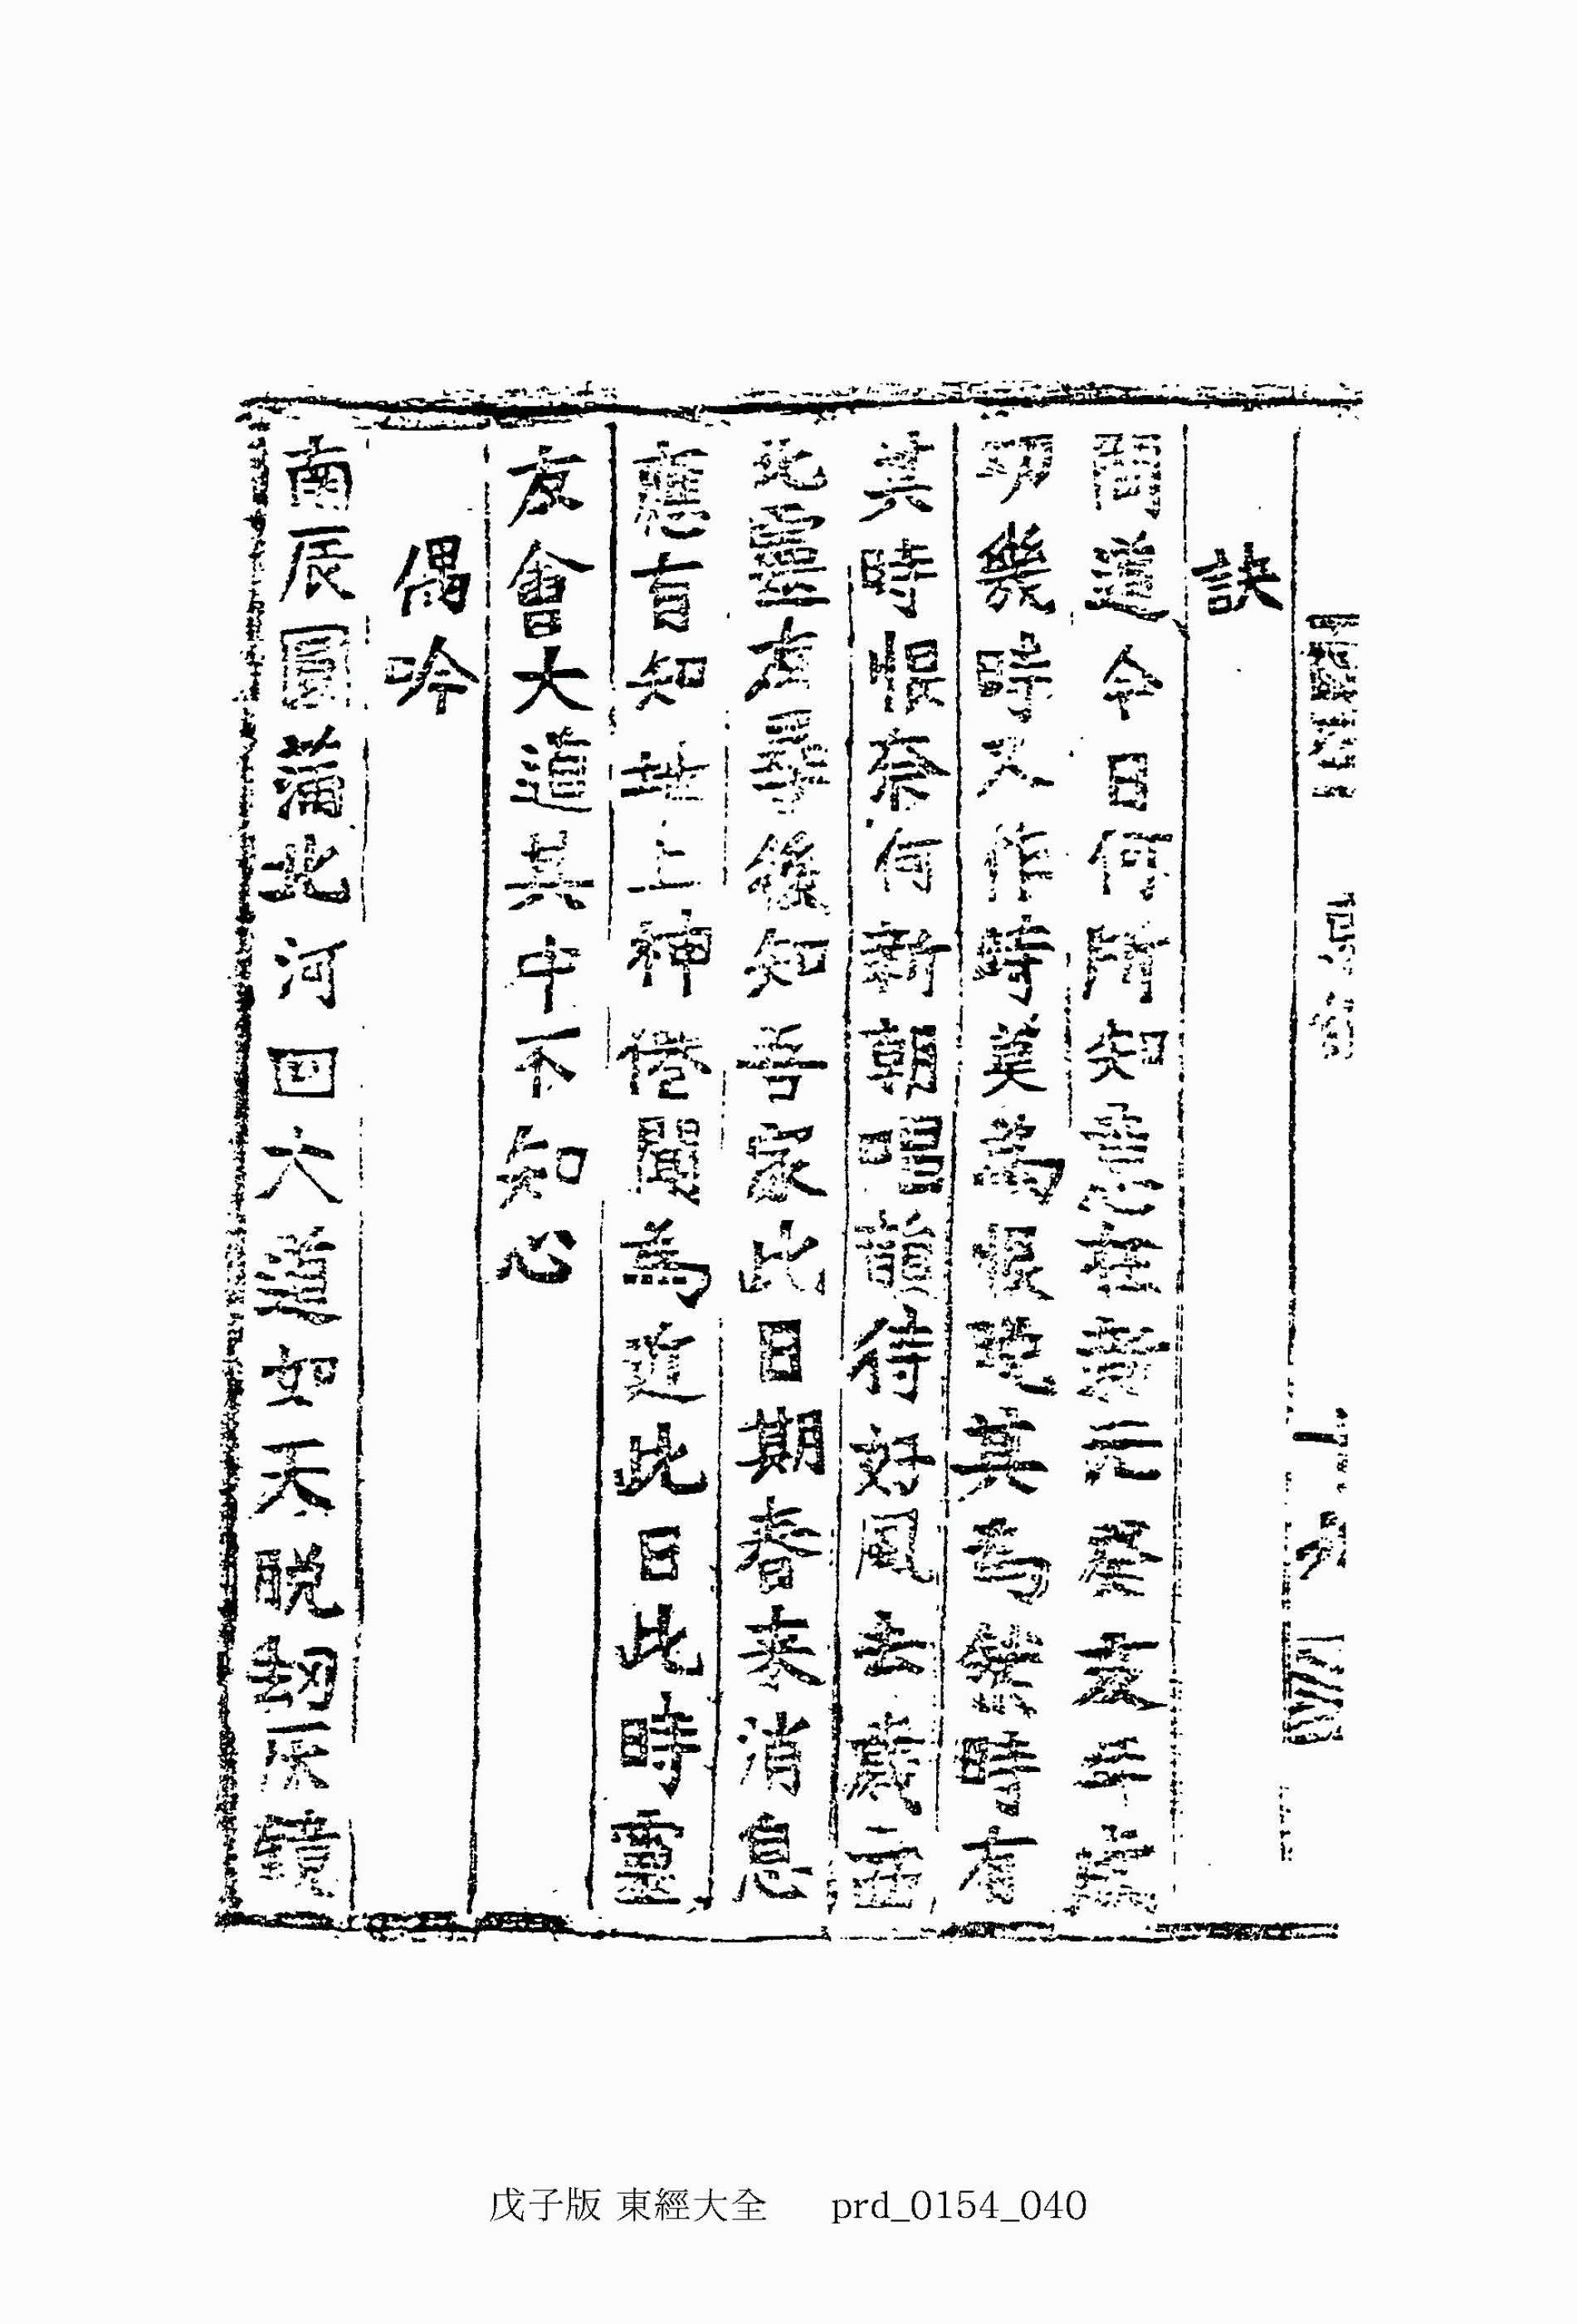 訣
問道今日何所知意在新元癸亥年成
功幾時又作時莫爲恨晩其爲然時有
其時恨奈何新朝唱韻待好風去歲西
北靈友尋後知吾家此日期春来消息
應有知地上神僊聞爲近此日此時靈
友會大道其中不知心
偶吟
南辰圓滿北河回大道如天脱刼灰鏡
戊子版 東經大全 prd_0154_040